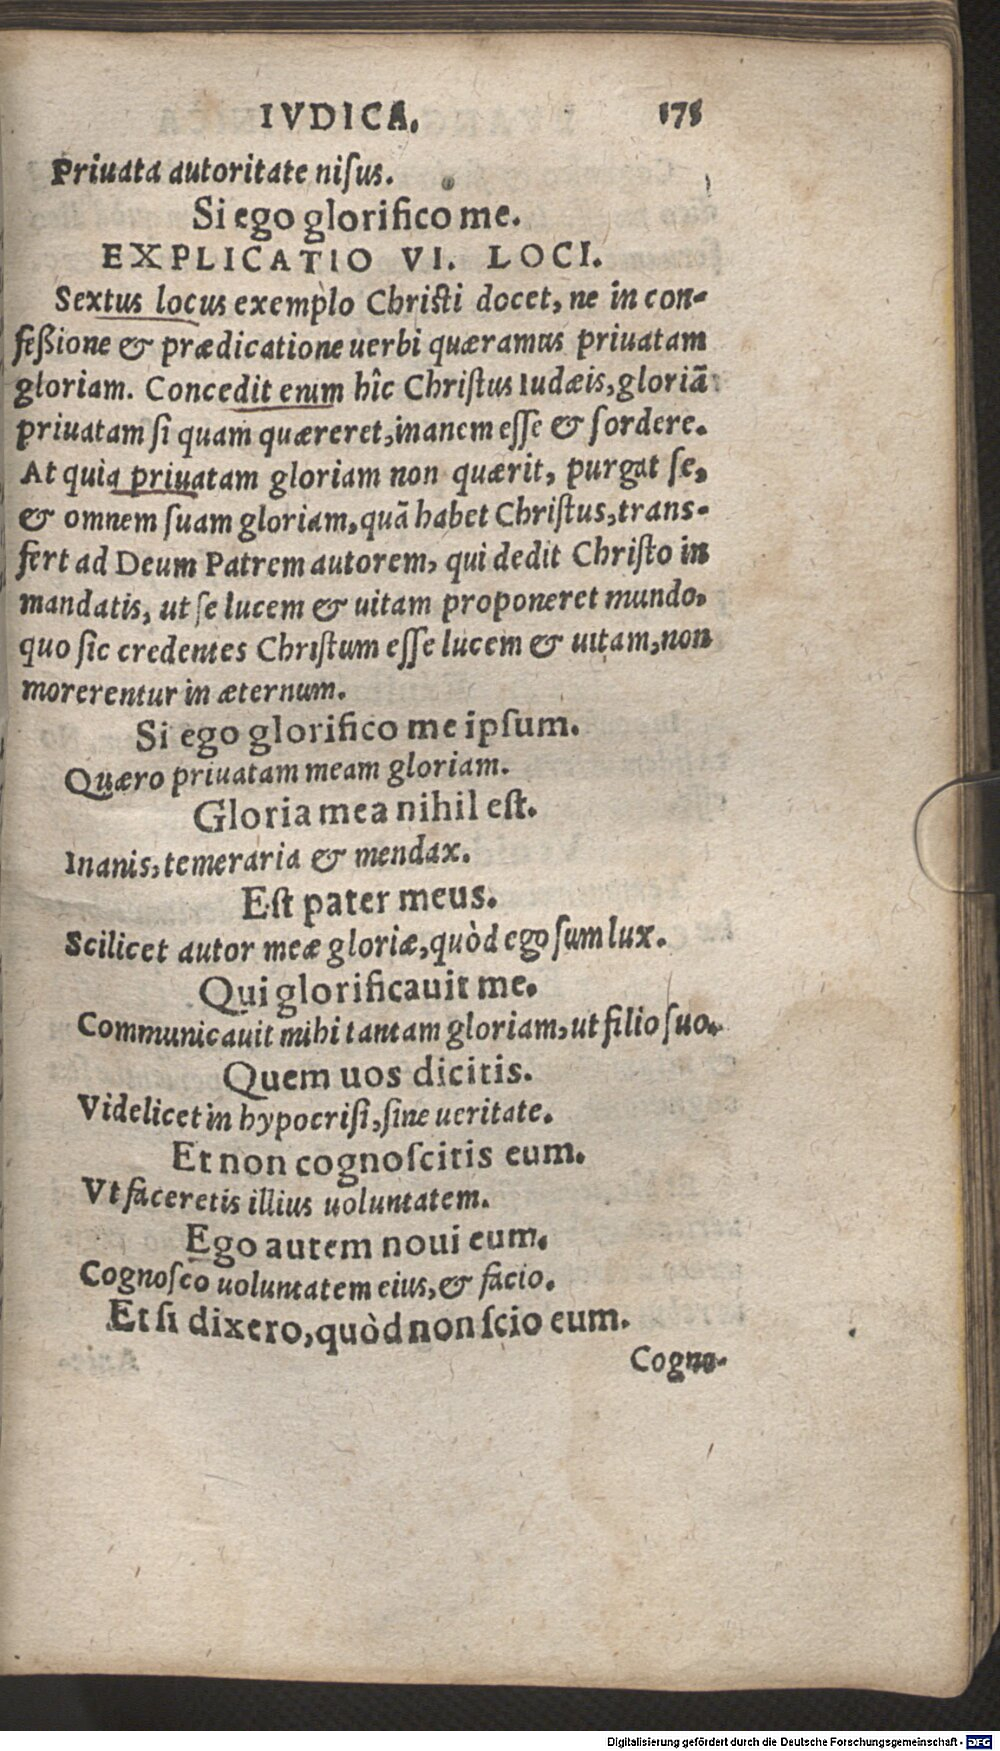 IVDICA. 175
Priuata autoritate niſus.
Si ego glorifico me.
EXPLICATIO VI. LOCI.
Sextus locus exemplo Chriſti docet, ne in con-
feßione & prædicatione uerbi quæramus priuatam
gloriam. Concedit enim hîc Chriſtus Iudæis, gloriã
priuatam ſi quam quæreret, inanem eſſe & ſordere.
At quia priuatam gloriam non quærit, purgat ſe,
& omnem ſuam gloriam, quã habet Chriſtus, trans-
fert ad Deum Patrem autorem, qui dedit Chriſto in
mandatis, ut ſe lucem & uitam proponeret mundo.
quo ſic credentes Chriſtum eſſe lucem & uitam, non
morerentur in æternum.
Si ego glorifico me ipſum.
Quæro priuatam meam gloriam.
Gloria mea nihil eſt.
Inanis, temeraria & mendax.
Eſt pater meus.
Scilicet autor meæ gloriæ, quòd ego ſum lux.
Qui glorificauit me.
Communicauit mihi tantam gloriam, ut filio ſuo.
Quem uos dicitis.
Videlicet in hypocriſi, ſine ueritate.
Et non cognoſcitis eum.
Vt faceretis illius uoluntatem.
Ego autem noui eum.
Cognoſco uoluntatem eius, & facio.
Et ſi dixero, quòd non ſcio eum.
Cogno-
Digitalisierung gefördert durch die Deutsche Forschungsgemeinschaft - DFG